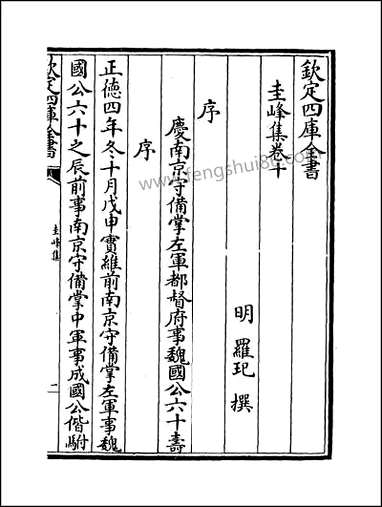 欽定四庫全書
圭峰集卷十
明 羅玘 撰
序
慶南京守備掌左軍都督府事魏國公六十壽
序
正德四年冬十月戊申實維前南京守備掌左軍事魏
國公六十之辰前事南京守備掌中軍事成國公偕駙
欽定四庫全書
圭峰集
一
www.fengshui86.com